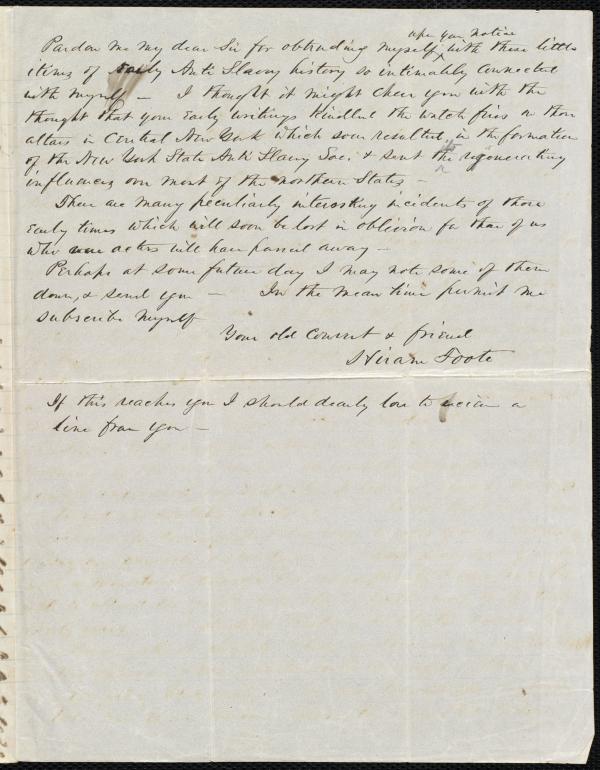 upon your notice
Pardon me my dear Sir for obtruding myself ^ with these little
items of early Anti Slavery history so intimately connected
with myself — I thought it might cheer you with the
thought that your early writings kindled the watch fires on those
altars in Central New York which soon resulted, in the formation
of the New York State Anti Slavery Soci. & sent its regenerating
influences over most of the northern States —
There are many peculiarly interesting incidents of those
early times which will soon be lost in oblivion for those of us
who were actors will have passed away —
Perhaps at some future day I may note some of them
down, & send you — In the mean time permit me
subscribe myself
Your old Convert & friend
Hiram Foote
If this reaches you I should dearly love to receive a
line from you —